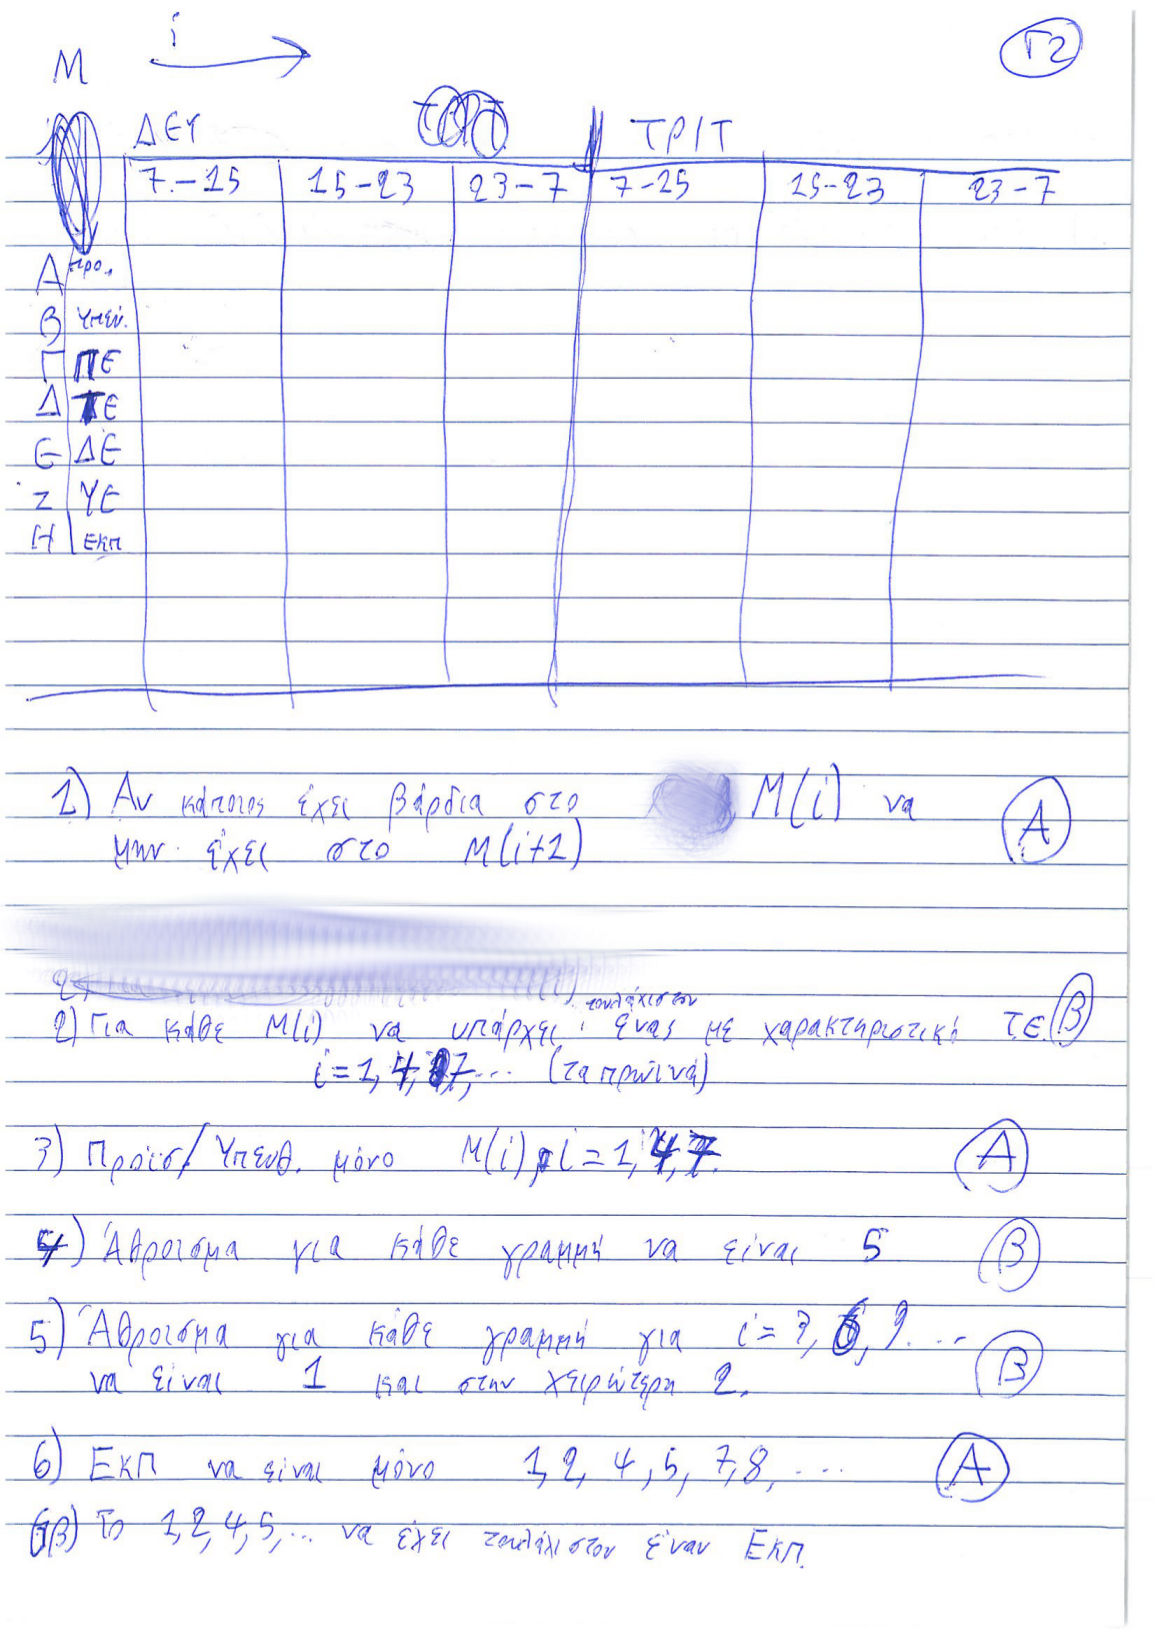 i
M
Γ2
ΔΕΥ ΤΡΙΤ
7.-15 15-23 23-7 7-15 15-23 23-7
Α προ.
Β Υπεύ.
Γ ΠΕ
Δ ΤΕ
Ε ΔΕ
Ζ ΥΕ
Η ΕΚΠ
1) Αν κάποιος έχει βάρδια στο M(i) να Α
μην έχει στο M(i+1)
τουλάχιστον
2) Για κάθε M(i) να υπάρχει ένας με χαρακτηριστικό Τ.Ε. Β
i=1, 4, 7, ... (τα πρωϊνά)
3) Προϊσ/Υπευθ. μόνο M(i), i=1, 4, 7. Α
4) Άθροισμα για κάθε γραμμή να είναι 5 Β
5) Άθροισμα για κάθε γραμμή για i=3, 6, 9 ...
να είναι 1 και στην χειρώτερη 2. Β
6) ΕΚΠ να είναι μόνο 1, 2, 4, 5, 7, 8, ... Α
6β) Το 1, 2, 4, 5, ... να έχει τουλάχιστον έναν ΕΚΠ.